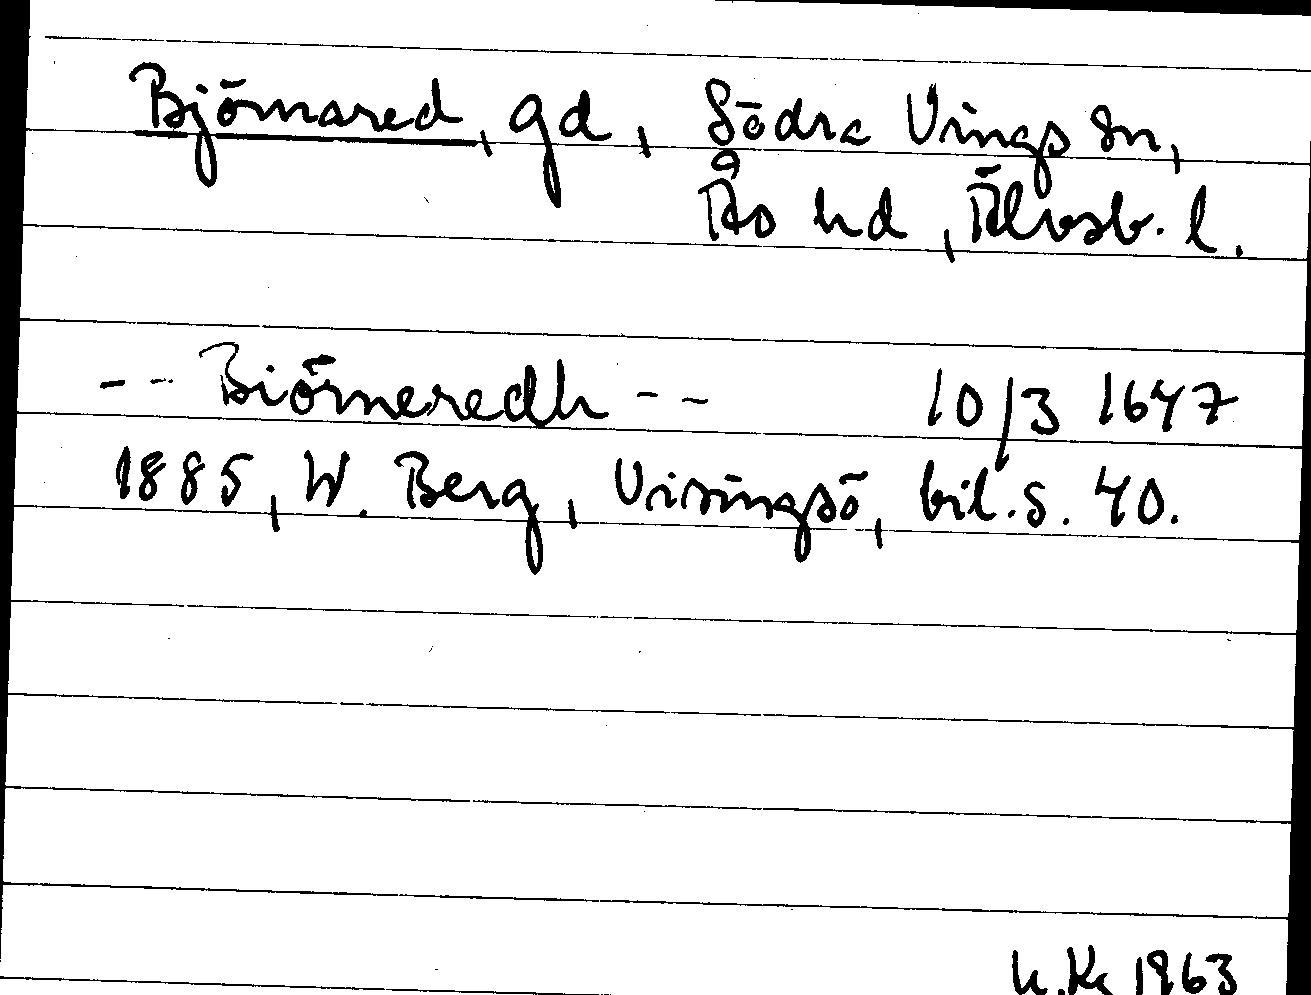 Björnared, gd, Södra Vings sn,
Ås hd, Älvsb. l.
-- Biörneredh -- 10/3 1647
1885, W. Berg, Visingsö, bil. s. 40.
1963